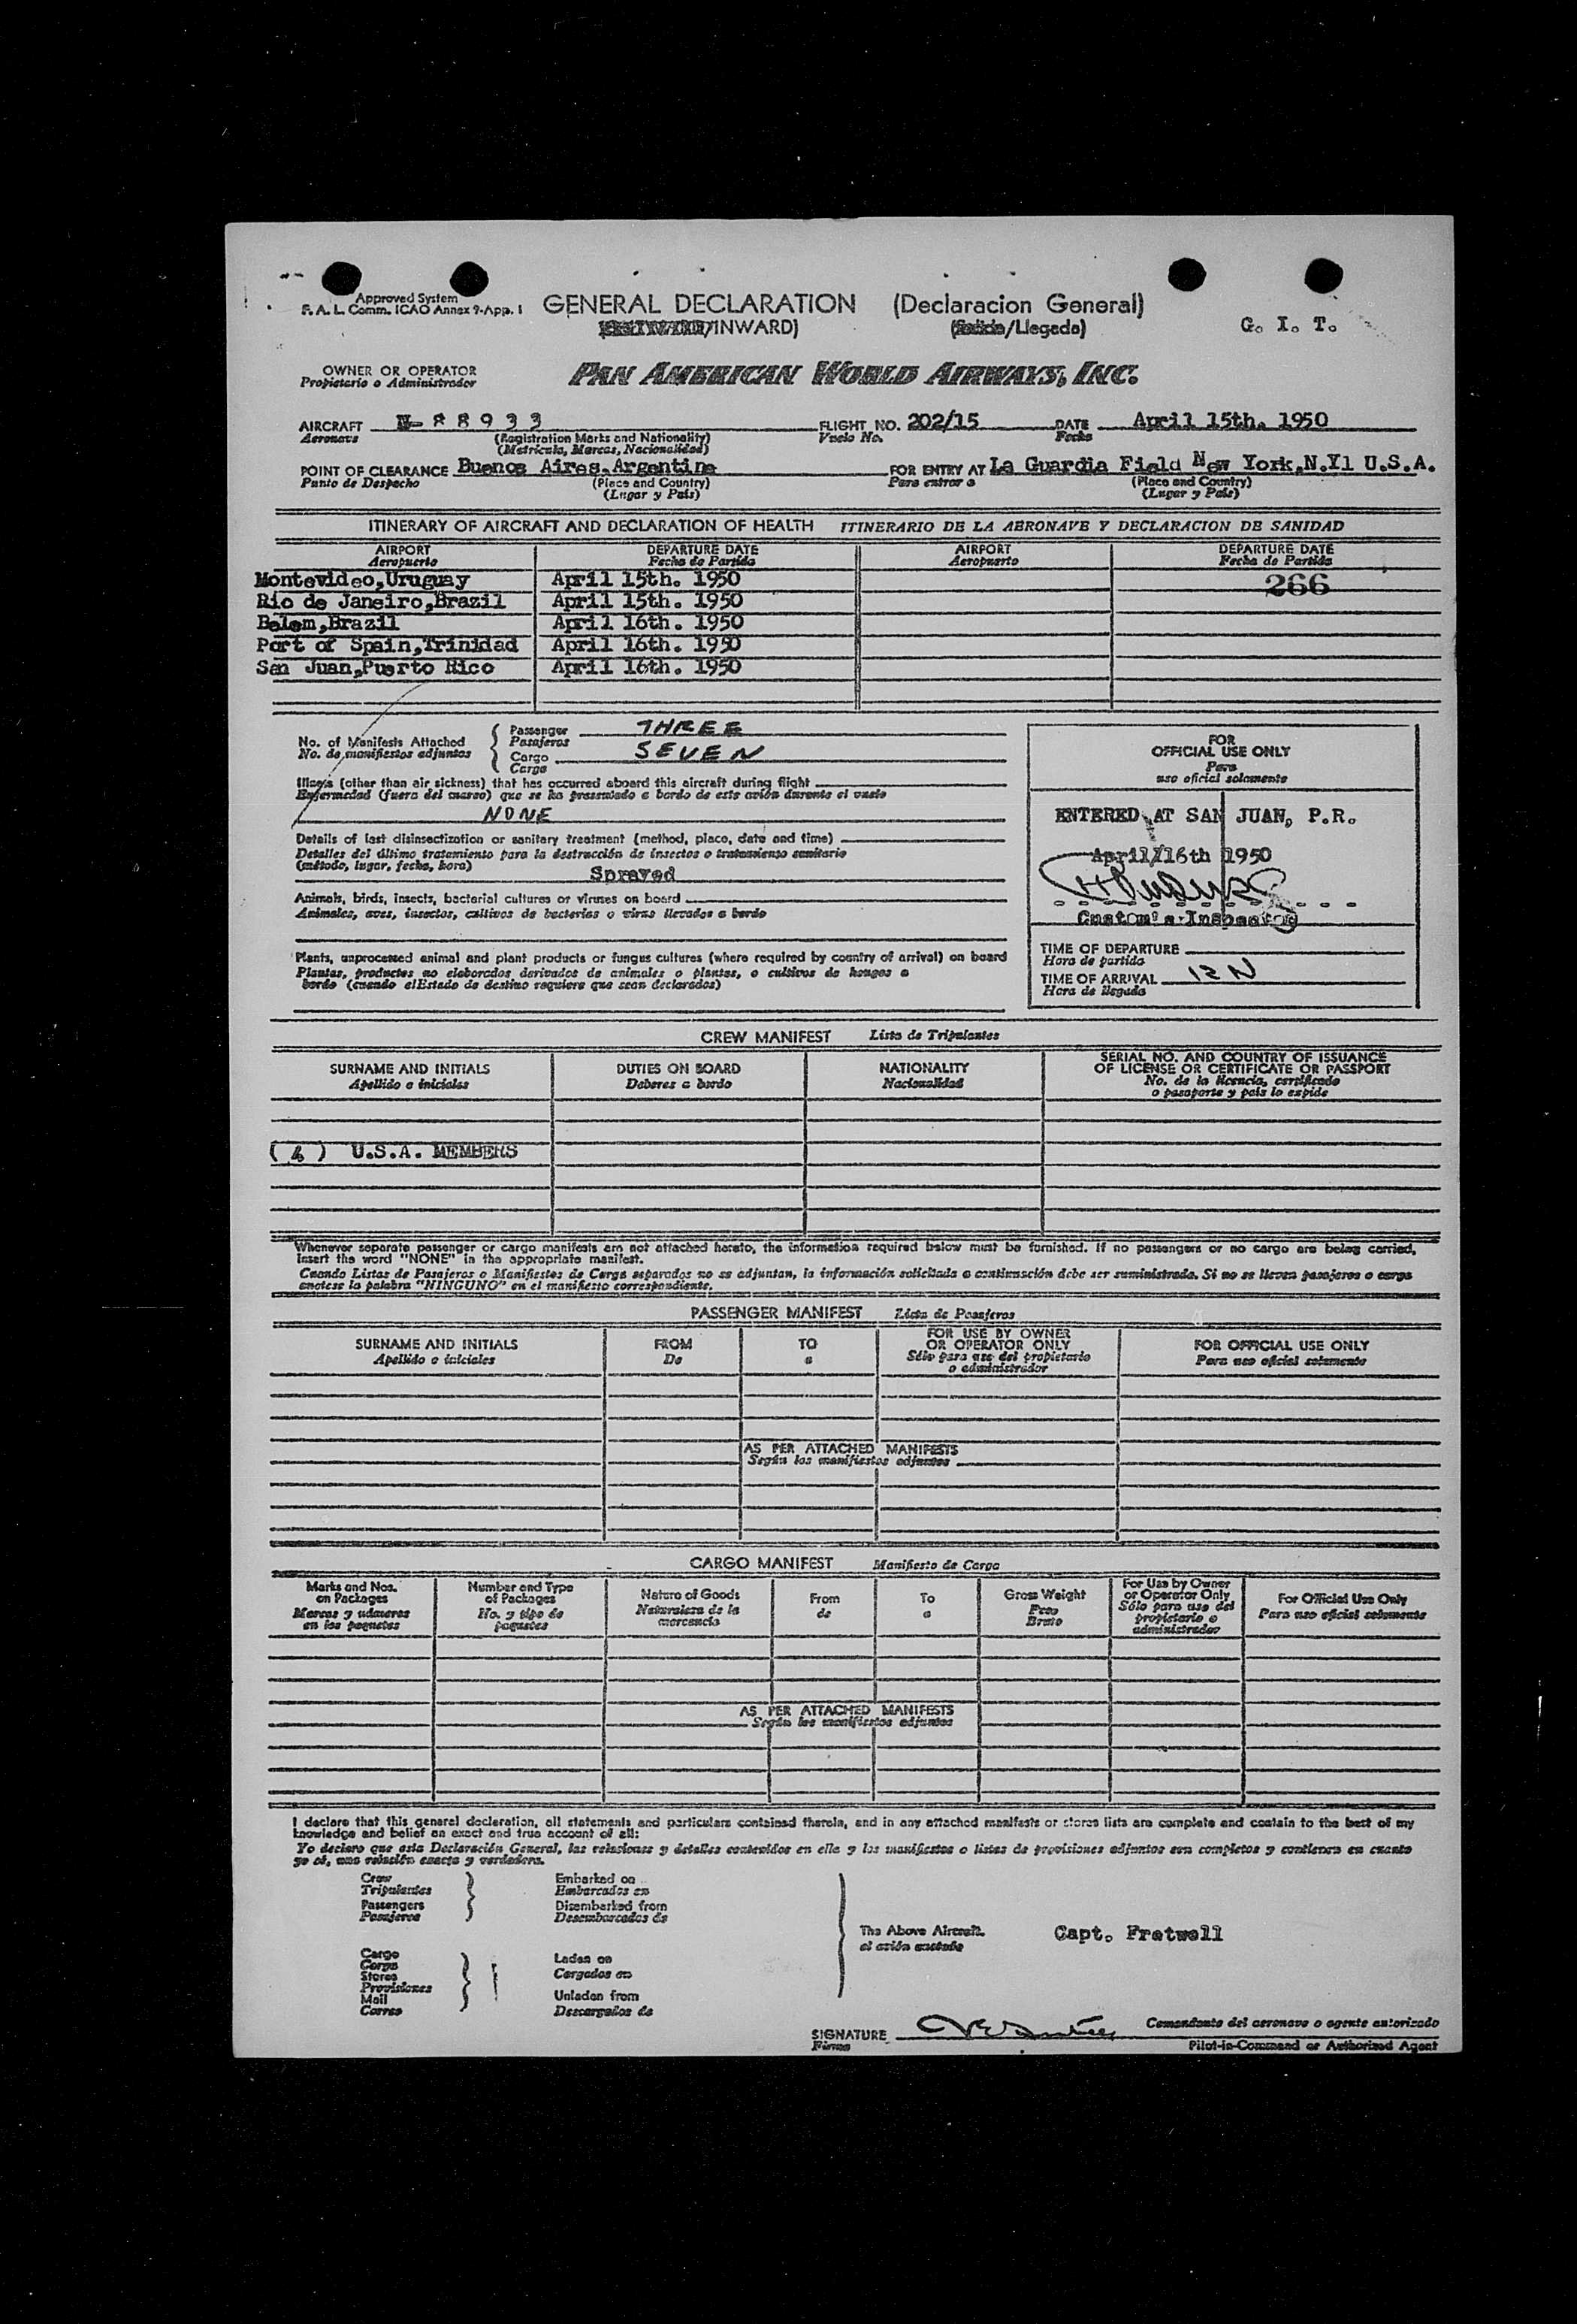 Approved System
F. A. L. Comm. ICAO Annex 9-App. 1
GENERAL DECLARATION (Declaracion General)
/INWARD) (Salida/Llegada)
G. I. T.
OWNER OR OPERATOR
Propietario o Administrador
PAN AMERICAN WORLD AIRWAYS, INC.
AIRCRAFT N-88933 FLIGHT NO. 202/15 DATE April 15th. 1950
Aeronave (Registration Marks and Nationality) Vuelo No. Fecha
(Matrícula, Marcas, Nacionalidad)
POINT OF CLEARANCE Buenos Aires,Argentina FOR ENTRY AT La Guardia Field New York,N.Y1 U.S.A.
Punto de Despacho (Place and Country) Para entrar a (Place and Country)
(Lugar y País) (Lugar y País)
ITINERARY OF AIRCRAFT AND DECLARATION OF HEALTH ITINERARIO DE LA AERONAVE Y DECLARACION DE SANIDAD
AIRPORT DEPARTURE DATE AIRPORT DEPARTURE DATE
Aeropuerto Fecha de Partida Aeropuerto Fecha de Partida
Montevideo,Uruguay April 15th. 1950 266
Rio de Janeiro,Brazil April 15th. 1950
Belem,Brazil April 16th. 1950
Port of Spain,Trinidad April 16th. 1950
San Juan,Puerto Rico April 16th. 1950
No. of Manifests Attached
No. de manifiestos adjuntos
Passenger THREE
Pasajeros
Cargo SEVEN
Carga
Illness (other than air sickness) that has occurred aboard this aircraft during flight
Enfermedad (fuera del mareo) que se ha presentado a bordo de este avión durante el vuelo
NONE
Details of last disinsectization or sanitary treatment (method, place, date and time)
Detalles del último tratamiento para la destrucción de insectos o tratamiento sanitario
(método, lugar, fecha, hora)
Sprayed
Animals, birds, insects, bacterial cultures or viruses on board
Animales, aves, insectos, cultivos de bacterias o virus llevados a bordo
Plants, unprocessed animal and plant products or fungus cultures (where required by country of arrival) on board
Plantas, productos no elaborados derivados de animales o plantas, o cultivos de hongos a
bordo (cuando elEstado de destino requiera que sean declarados)
FOR
OFFICIAL USE ONLY
Para
uso oficial solamente
ENTERED AT SAN JUAN, P.R.
April 16th 1950
Custom's Inspector
TIME OF DEPARTURE
Hora de partida
TIME OF ARRIVAL 12 N
Hora de llegada
CREW MANIFEST Lista de Tripulantes
SURNAME AND INITIALS DUTIES ON BOARD NATIONALITY SERIAL NO. AND COUNTRY OF ISSUANCE
OF LICENSE OR CERTIFICATE OR PASSPORT
Apellido e iniciales Deberes a bordo Nacionalidad No. de la licencia, certificado
o pasaporte y país lo expide
( 4 ) U.S.A. MEMBERS
Whenever separate passenger or cargo manifests are not attached hereto, the information required below must be furnished. If no passengers or no cargo are being carried,
insert the word "NONE" in the appropriate manifest.
Cuando Listas de Pasajeros o Manifiestos de Carga separados no se adjuntan, la información solicitada a continuación debe ser suministrada. Si no se llevan pasajeros o carga
anotese la palabra "NINGUNO" en el manifiesto correspondiente.
PASSENGER MANIFEST Lista de Pasajeros
SURNAME AND INITIALS FROM TO FOR USE BY OWNER
OR OPERATOR ONLY FOR OFFICIAL USE ONLY
Apellido e iniciales De a Sólo para uso del propietario
o administrador Para uso oficial solamente
AS PER ATTACHED MANIFESTS
Según los manifiestos adjuntos
CARGO MANIFEST Manifiesto de Carga
Marks and Nos.
on Packages
Marcas y números
en los paquetes
Number and Type
of Packages
No. y tipo de
paquetes
Nature of Goods
Naturaleza de la
mercancía
From
de
To
a
Gross Weight
Peso
Bruto
For Use by Owner
or Operator Only
Sólo para uso del
propietario o
administrador
For Official Use Only
Para uso oficial solamente
AS PER ATTACHED MANIFESTS
Según los manifiestos adjuntos
I declare that this general declaration, all statements and particulars contained therein, and in any attached manifests or stores lists are complete and contain to the best of my
knowledge and belief an exact and true account of all:
Yo declaro que esta Declaración General, las relaciones y detalles contenidos en ella y los manifiestos o listas de provisiones adjuntos son completos y contienen en cuanto
yo sé, una relación exacta y verdadera.
Crew
Tripulantes
Passengers
Pasajeros
Embarked on
Embarcados en
Disembarked from
Desembarcados de
Cargo
Carga
Stores
Provisiones
Mail
Correo
Laden on
Cargados en
Unladen from
Descargados de
The Above Aircraft.
el avión anotado
Capt. Fretwell
SIGNATURE
Firma
Comandante del aeronave o agente autorizado
Pilot-in-Command or Authorized Agent